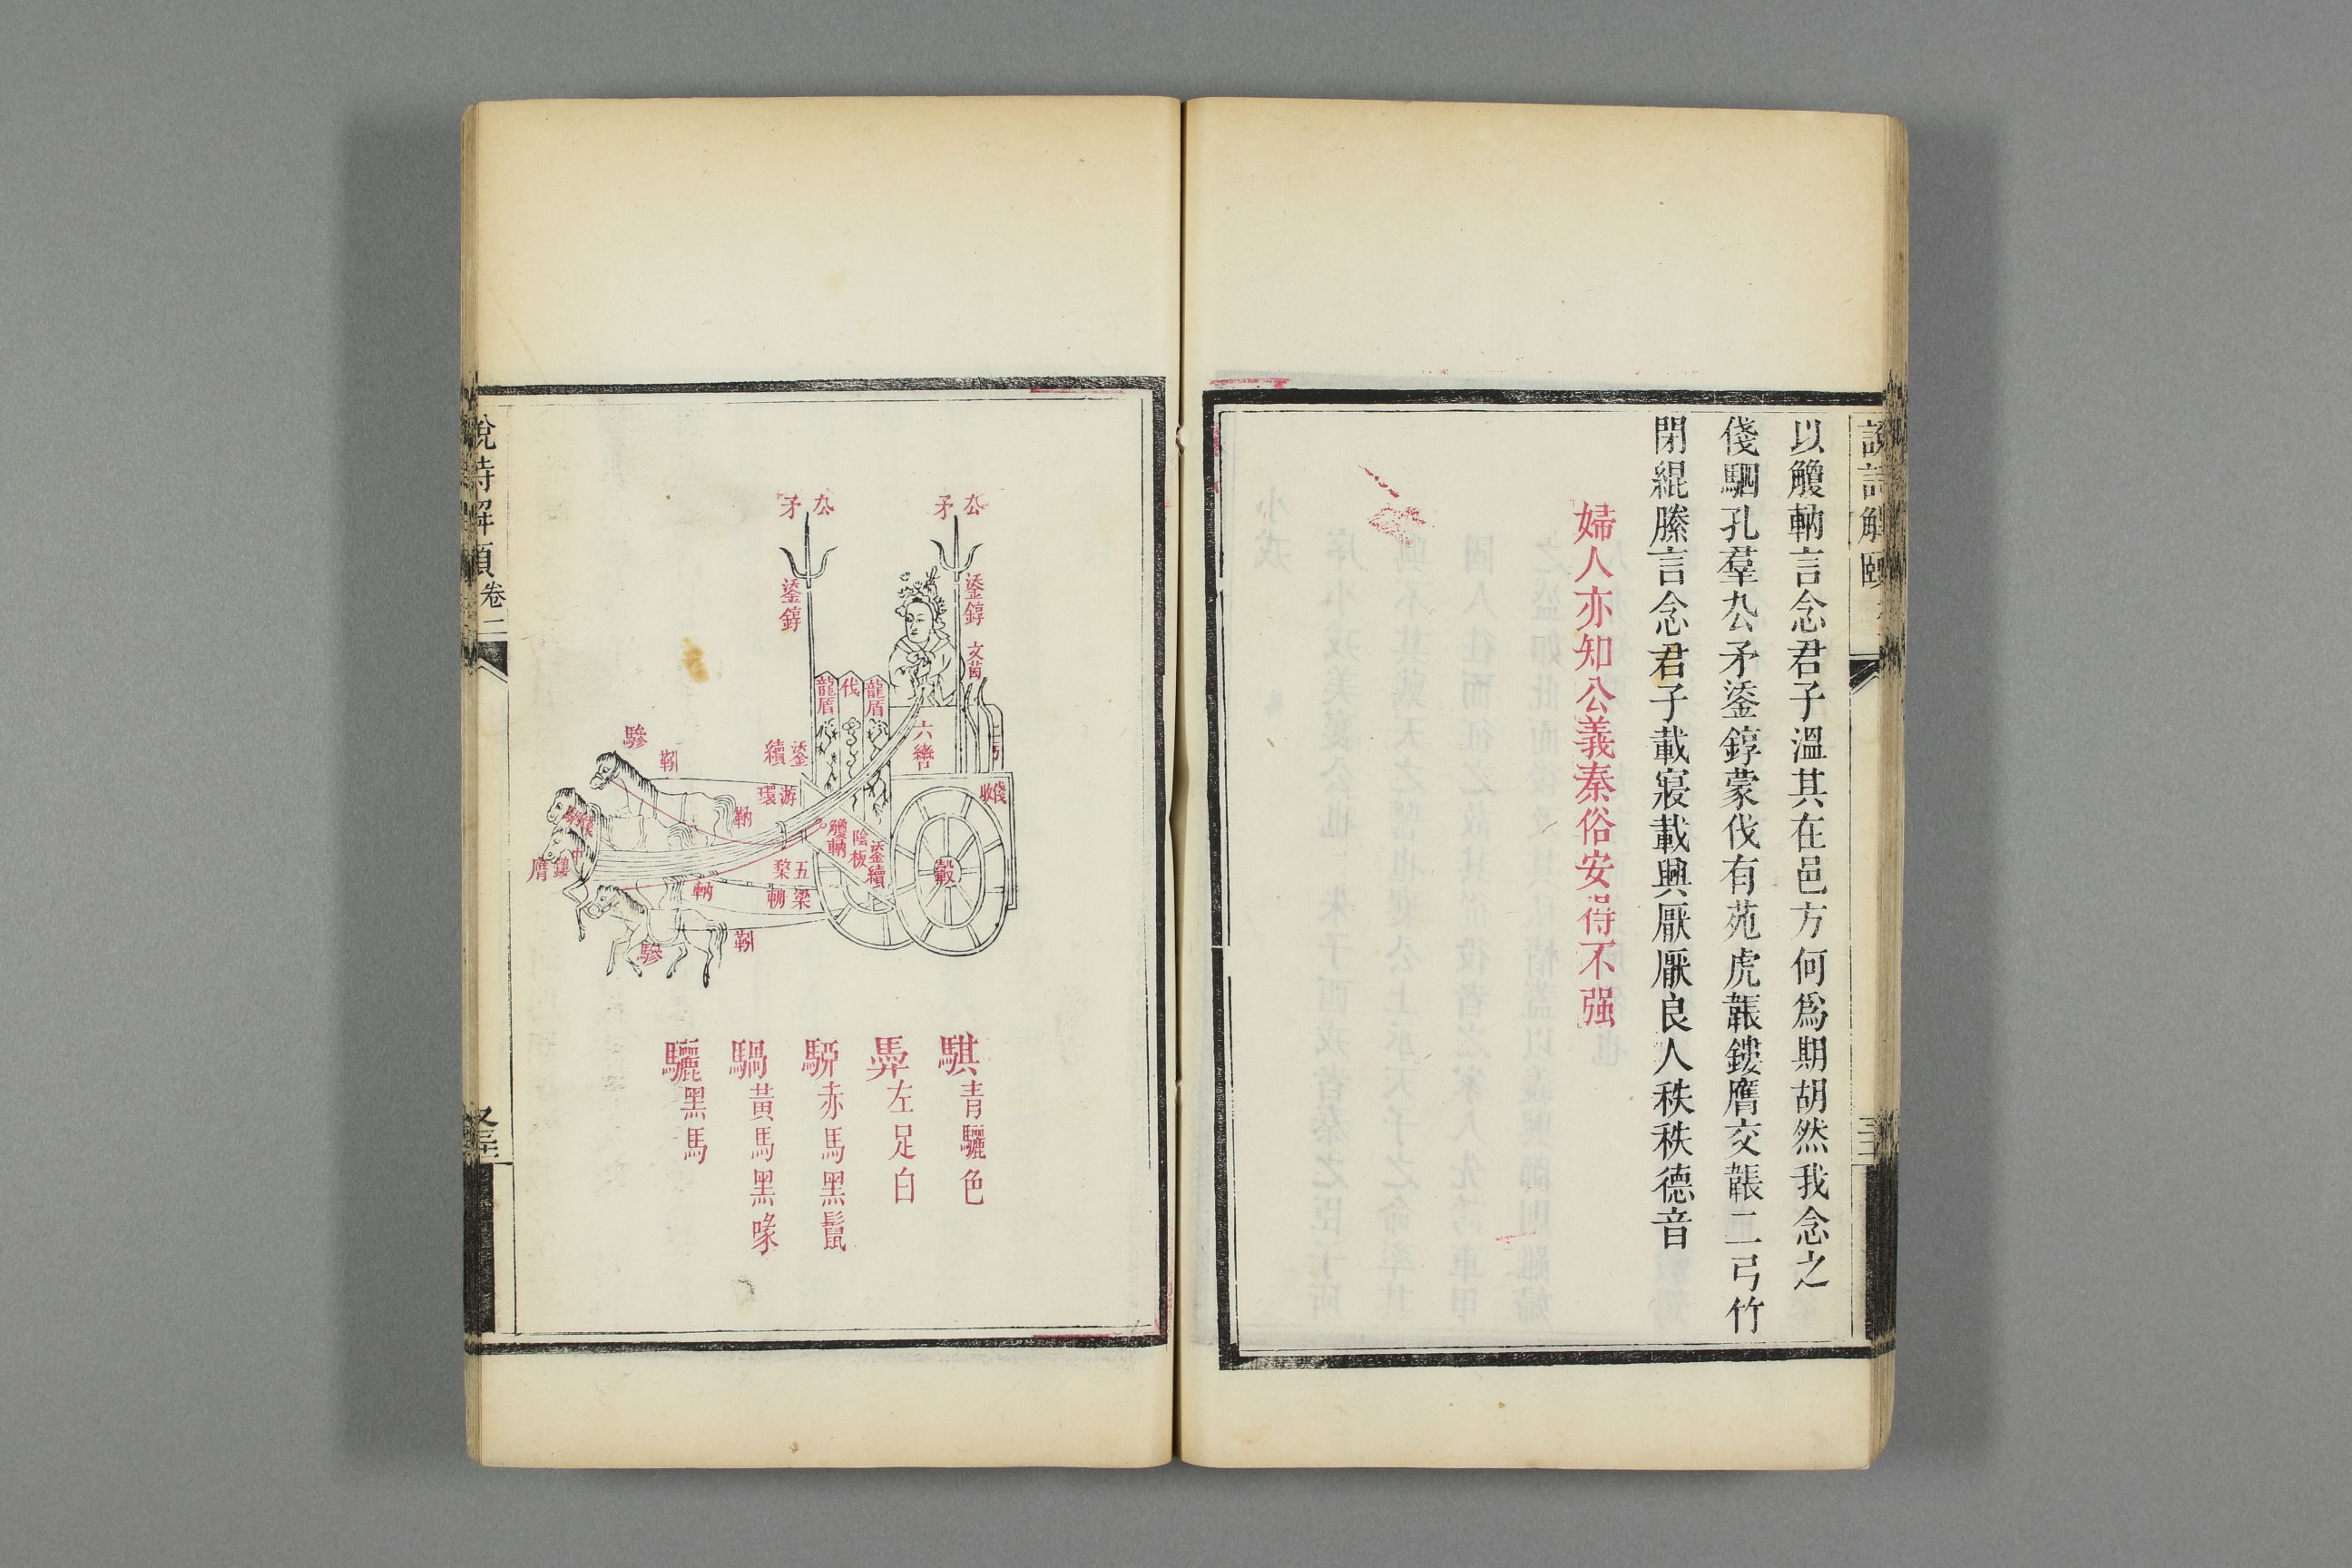 說詩解頤
以觼軜言念君子溫其在邑方何爲期胡然我念之
俴駟孔羣厹矛鋈錞蒙伐有苑虎韔鏤膺交韔二弓竹
閉緄縢言念君子載寢載興厭厭良人秩秩德音
婦人亦知公義秦俗安得不强
厹矛
厹矛
鋈錞
鋈錞
文茵
龍盾
伐
龍盾
六轡
鋈續
游環
俴收
驂
靷
軜
觼軜
陰板
鋈續
五楘
梁輈
轂
鏤膺
軜
靷
驂
騏青驪色
馵左足白
騂赤馬黑鬣
騧黃馬黑喙
驪黑馬
說詩解頤
卷二
又三十二